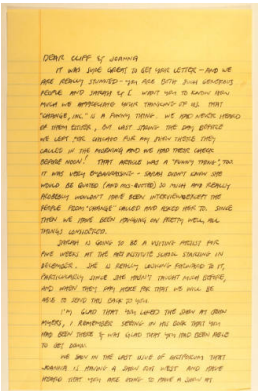 DEAR CLIFF & JOANNA
IT WAS SURE GREAT TO GET YOUR LETTER – AND WE
ARE REALLY STUNNED – YOU ARE BOTH SUCH GENEROUS
PEOPLE AND SARAH & I WANT YOU TO KNOW HOW
MUCH WE APPRECIATE YOUR THINKING OF US. THAT
"CHANGE, INC." IS A FUNNY THING. WE HAD NEVER HEARD
OF THEM EITHER, BUT LAST SPRING THE DAY BEFORE
WE LEFT FOR CHICAGO FOR MY SHOW THERE THEY
CALLED IN THE MORNING AND WE HAD THEIR CHECK
BEFORE NOON! THAT ARTICLE WAS A "FUNNY THING", TOO
IT WAS VERY EMBARRASSING – SARAH DIDN'T KNOW SHE
WOULD BE QUOTED (AND MIS-QUOTED) SO MUCH AND REALLY
PROBABLY WOULDN'T HAVE BEEN INTERVIEWED EXCEPT THE
PEOPLE FROM "CHANGE" CALLED AND ASKED HER TO. SINCE
THEN WE HAVE BEEN HANGING ON PRETTY WELL, ALL
THINGS CONSIDERED.
SARAH IS GOING TO BE A VISITING ARTIST FOR
FIVE WEEKS AT THE ART INSTITUTE SCHOOL STARTING IN
DECEMBER. SHE IS REALLY LOOKING FORWARD TO IT,
PARTICULARLY SINCE SHE HASN'T TAUGHT MUCH BEFORE,
AND WHEN THEY PAY HER FOR THAT WE WILL BE
ABLE TO SEND THIS BACK TO YOU.
I'M GLAD THAT YOU LIKED THE SHOW AT
MYERS, I REMEMBER SEEING IN HIS BOOK THAT YOU
HAD BEEN THERE & WAS GLAD THAT YOU HAD BEEN ABLE
TO GET DOWN.
WE SAW IN THE LAST ISSUE OF ARTFORUM THAT
JOANNA IS HAVING A SHOW OUT WEST AND HAVE
HEARD THAT YOU ARE GOING TO HAVE A SHOW AT